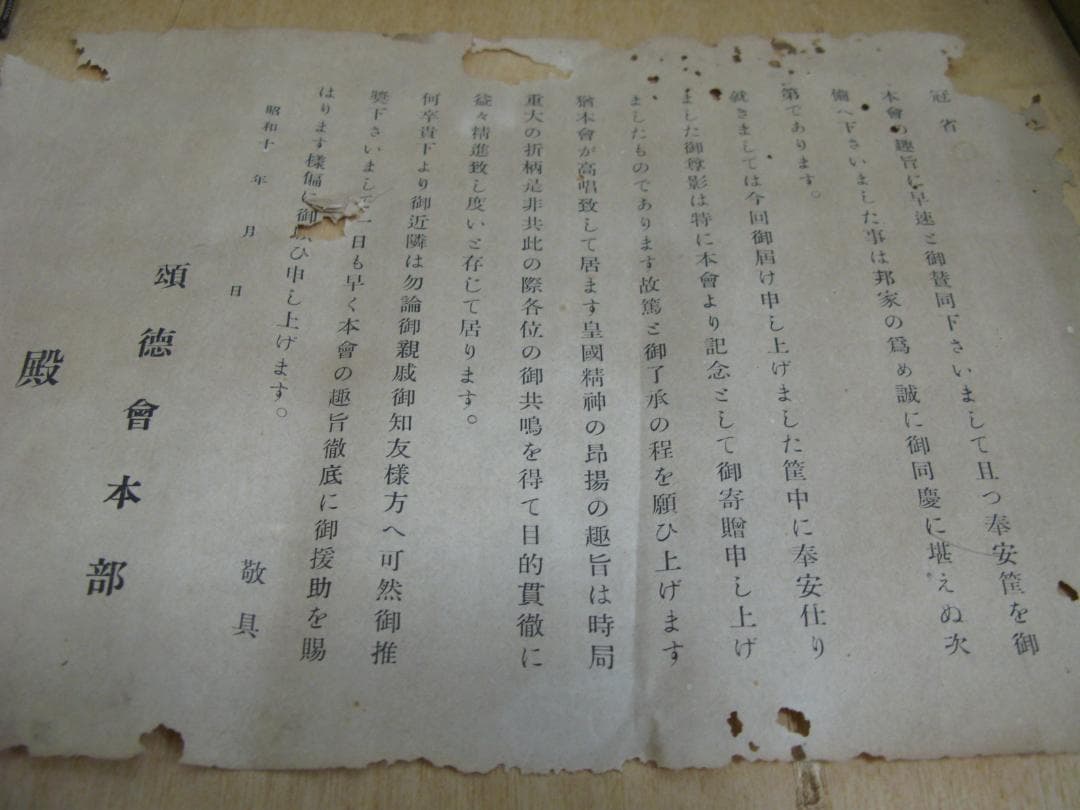 冠省
本會の趣旨に早速と御賛同下さいまして且つ奉安筐を御
備へ下さいました事は邦家の爲め誠に御同慶に堪えぬ次
第であります。
就きましては今回御屆け申し上げました筐中に奉安仕り
ました御尊影は特に本會より記念として御寄贈申し上げ
ましたものであります故篤と御了承の程を願ひ上げます
猶本會が高唱致して居ます皇國精神の昂揚の趣旨は時局
重大の折柄是非共此の際各位の御共鳴を得て目的貫徹に
益々精進致し度いと存じて居ります。
何卒貴下より御近隣は勿論御親戚御知友樣方へ可然御推
奬下さいまして一日も早く本會の趣旨徹底に御援助を賜
はります樣偏に御願ひ申し上げます。
敬具
昭和十 年 月 日
頌德會本部
殿